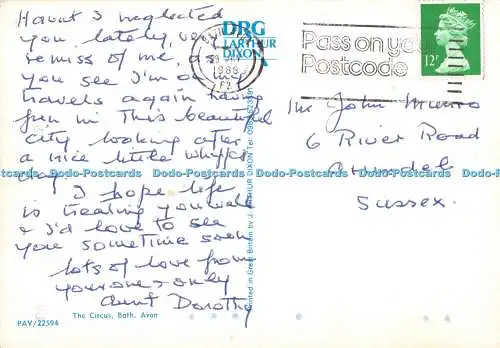 Haven't I neglected
you lately, very
remiss of me, as
you see I'm on my
travels again having
fun in this beautiful
city looking after
a nice little whippet
dog.
I hope life
is treating you well
& I'd love to see
you sometime soon
Lots of love from
your one & only
Aunt Dorothy
The Circus, Bath, Avon
PAV/22594
DRG
J. ARTHUR
DIXON
Printed in Great Britain by J. ARTHUR DIXON
1986
Pass on your
Postcode
12P
Mr John Munro
6 River Road
Arundel
Sussex.
Dodo-Postcards Dodo-Postcards Dodo-Postcards Dodo-Postcards Dodo-Postcards Dodo-Postcards